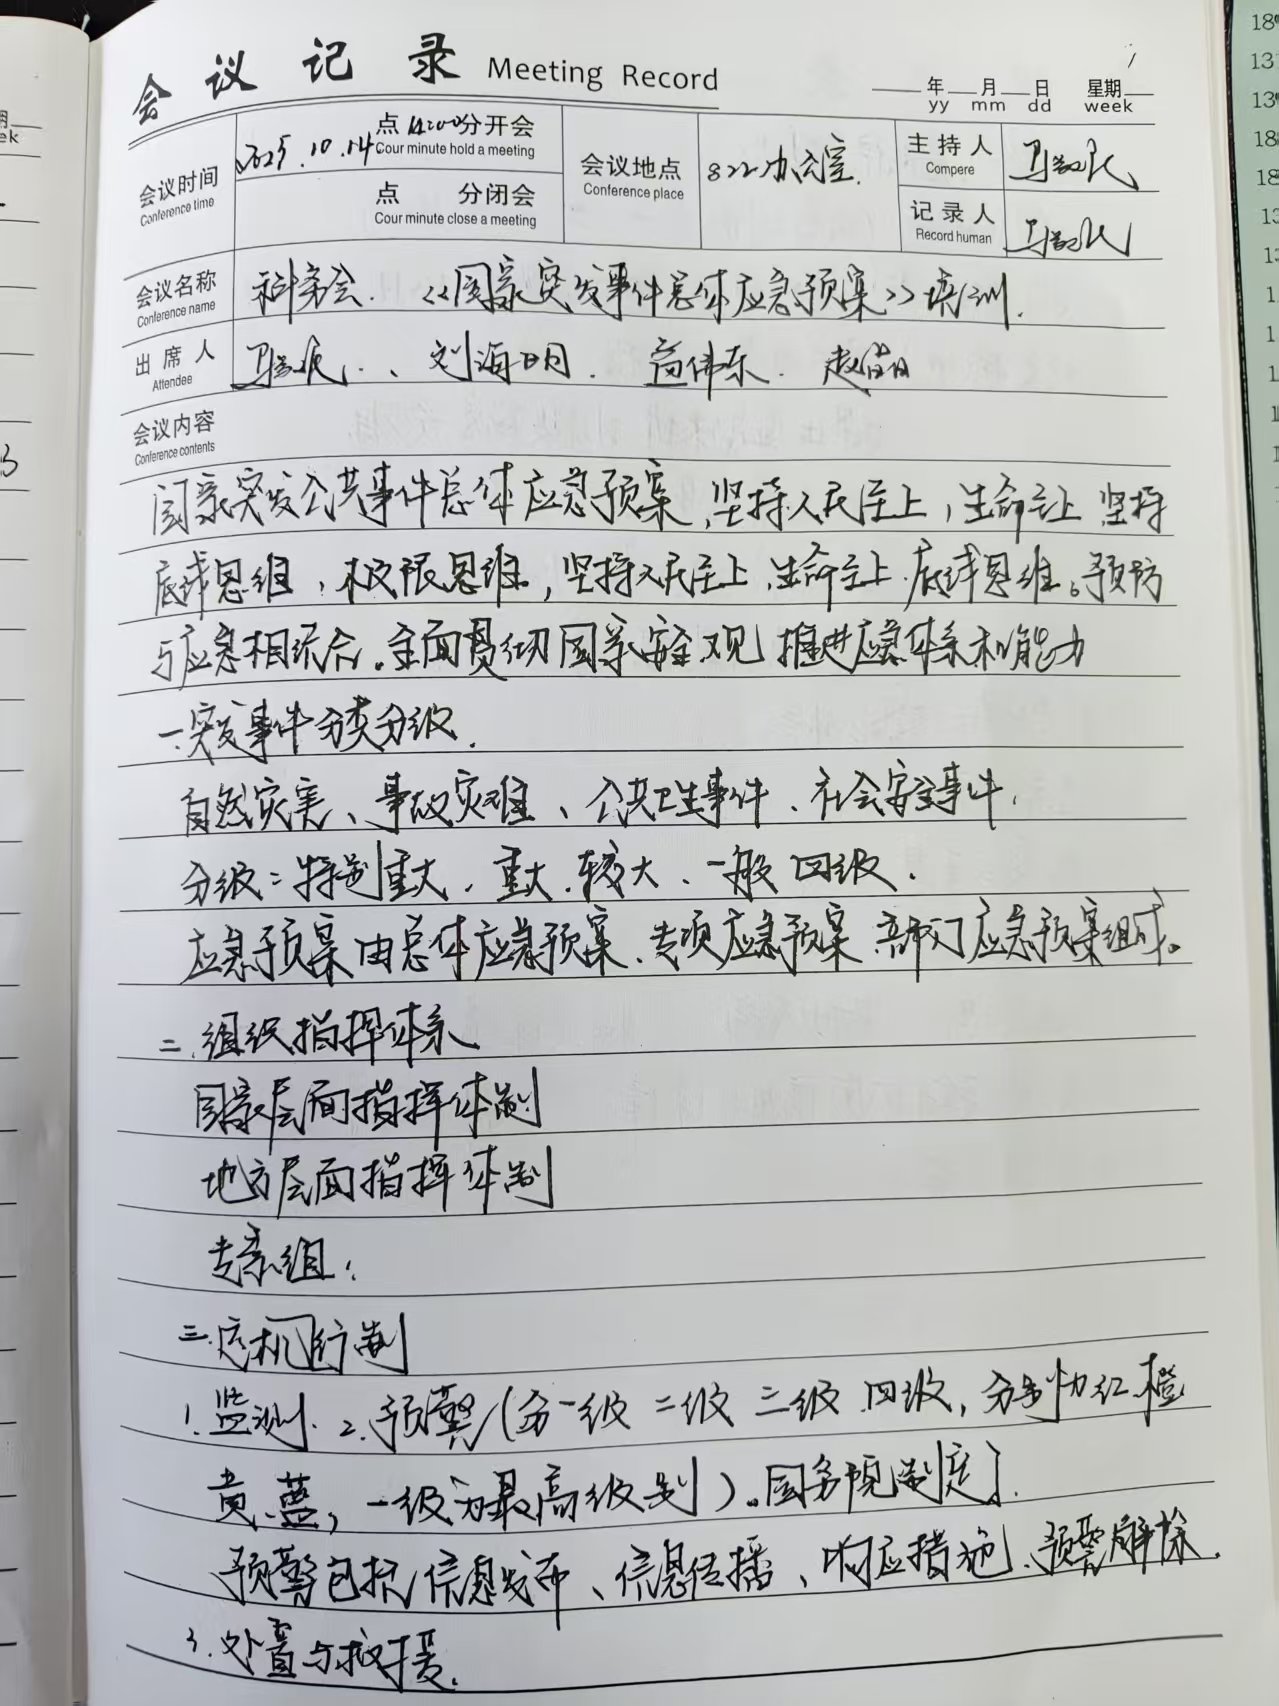 会议记录 Meeting Record
年 月 日 星期
yy mm dd week
会议时间
Conference time
2025.10.14 点 14:00分开会
Cour minute hold a meeting
点 分闭会
Cour minute close a meeting
会议地点
Conference place
822办公室.
主持人
Compere
记录人
Record human
会议名称
Conference name
科务会. 《国家突发事件总体应急预案》培训.
出席人
Attendee
刘海明.
会议内容
Conference contents
国家突发公共事件总体应急预案,坚持人民至上,生命至上 坚持
底线思维,极限思维,坚持人民至上,生命至上.底线思维。预防
与应急相结合.全面贯彻国家安全观 推进应急体系和能力
一.突发事件分类分级.
自然灾害、事故灾难、公共卫生事件、社会安全事件.
分级:特别重大、重大.较大、一般 四级.
应急预案由总体应急预案、专项应急预案 部门应急预案组成。
二.组织指挥体系
国家层面指挥体制
地方层面指挥体制
专家组:
三.运机行制
1.监测. 2.预警(分一级 二级 三级 四级,分别为红.橙
黄.蓝,一级为最高级别)。国务院制定
预警包括信息发布、信息传播、响应措施、预警解除.
3.处置与救援.